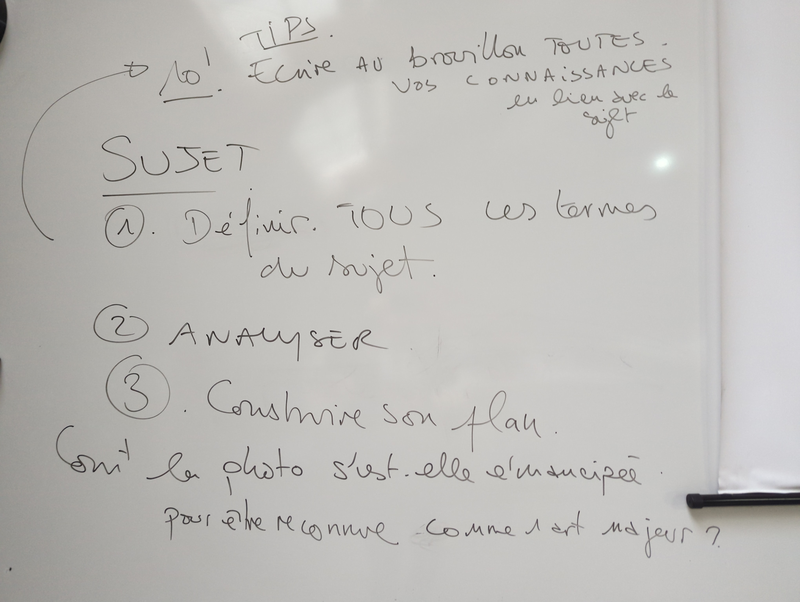 TIPS.
10'. Ecrire AU brouillon TOUTES.
VOS CONNAISSANCES
en lien avec le
sujet
SUJET
1. Définir. TOUS les termes
du sujet.
2 ANALYSER.
3. Construire son plan.
Comt la photo s'est-elle émancipée
pour être reconnue comme 1 art majeur ?